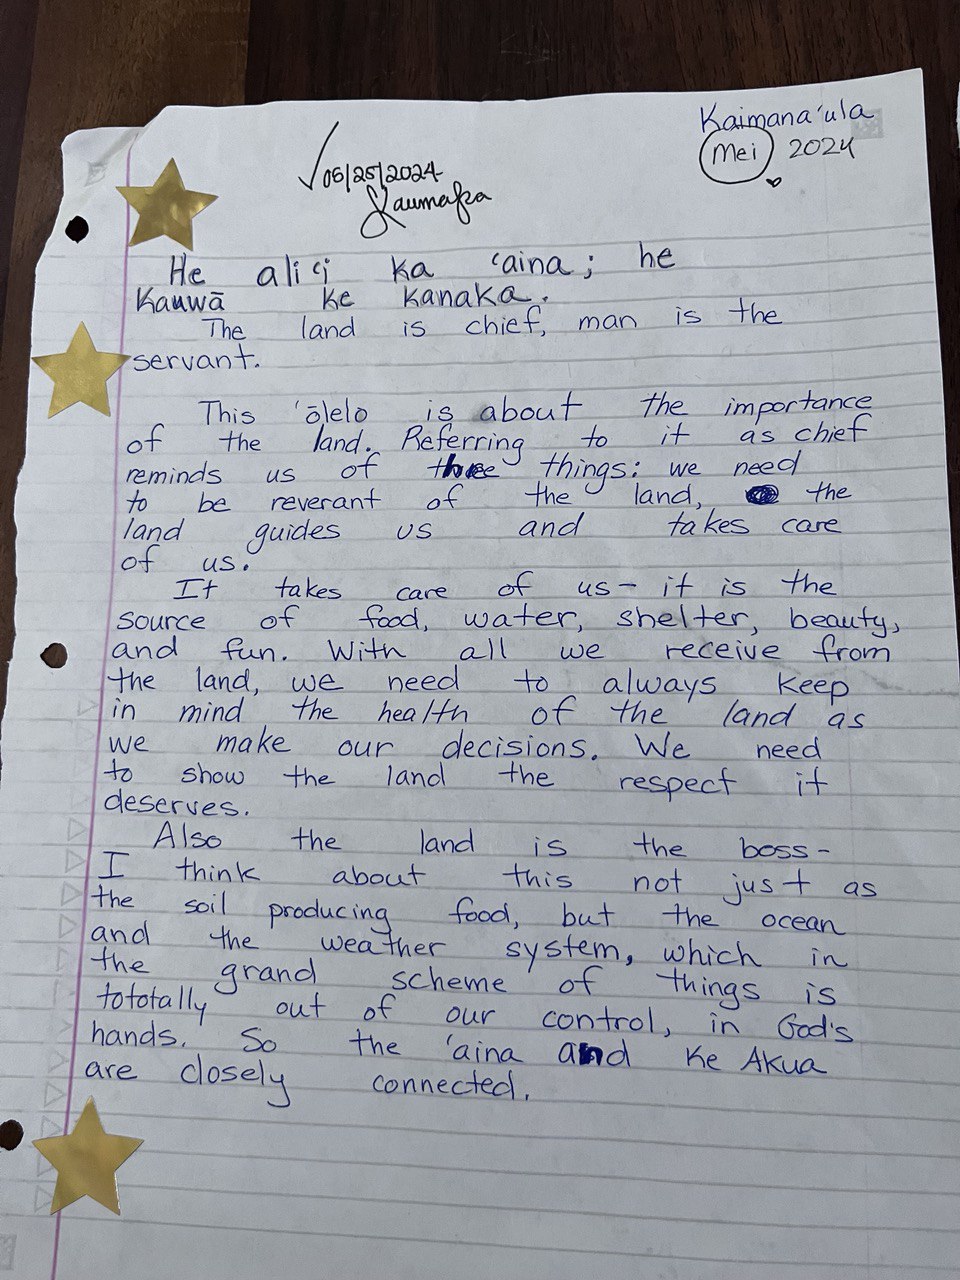 Kaimana'ula
Mei 2024
05/25/2024
Kaumaka
He ali'i ka 'aina; he
Kauwā ke kanaka.
The land is chief, man is the
servant.
This 'ōlelo is about the importance
of the land. Referring to it as chief
reminds us of three things: we need
to be reverant of the land, the
land guides us and takes care
of us.
It takes care of us - it is the
source of food, water, shelter, beauty,
and fun. With all we receive from
the land, we need to always keep
in mind the health of the land as
we make our decisions. We need
to show the land the respect it
deserves.
Also the land is the boss -
I think about this not just as
the soil producing food, but the ocean
and the weather system, which in
the grand scheme of things is
tototally out of our control, in God's
hands. So the 'aina and Ke Akua
are closely connected.